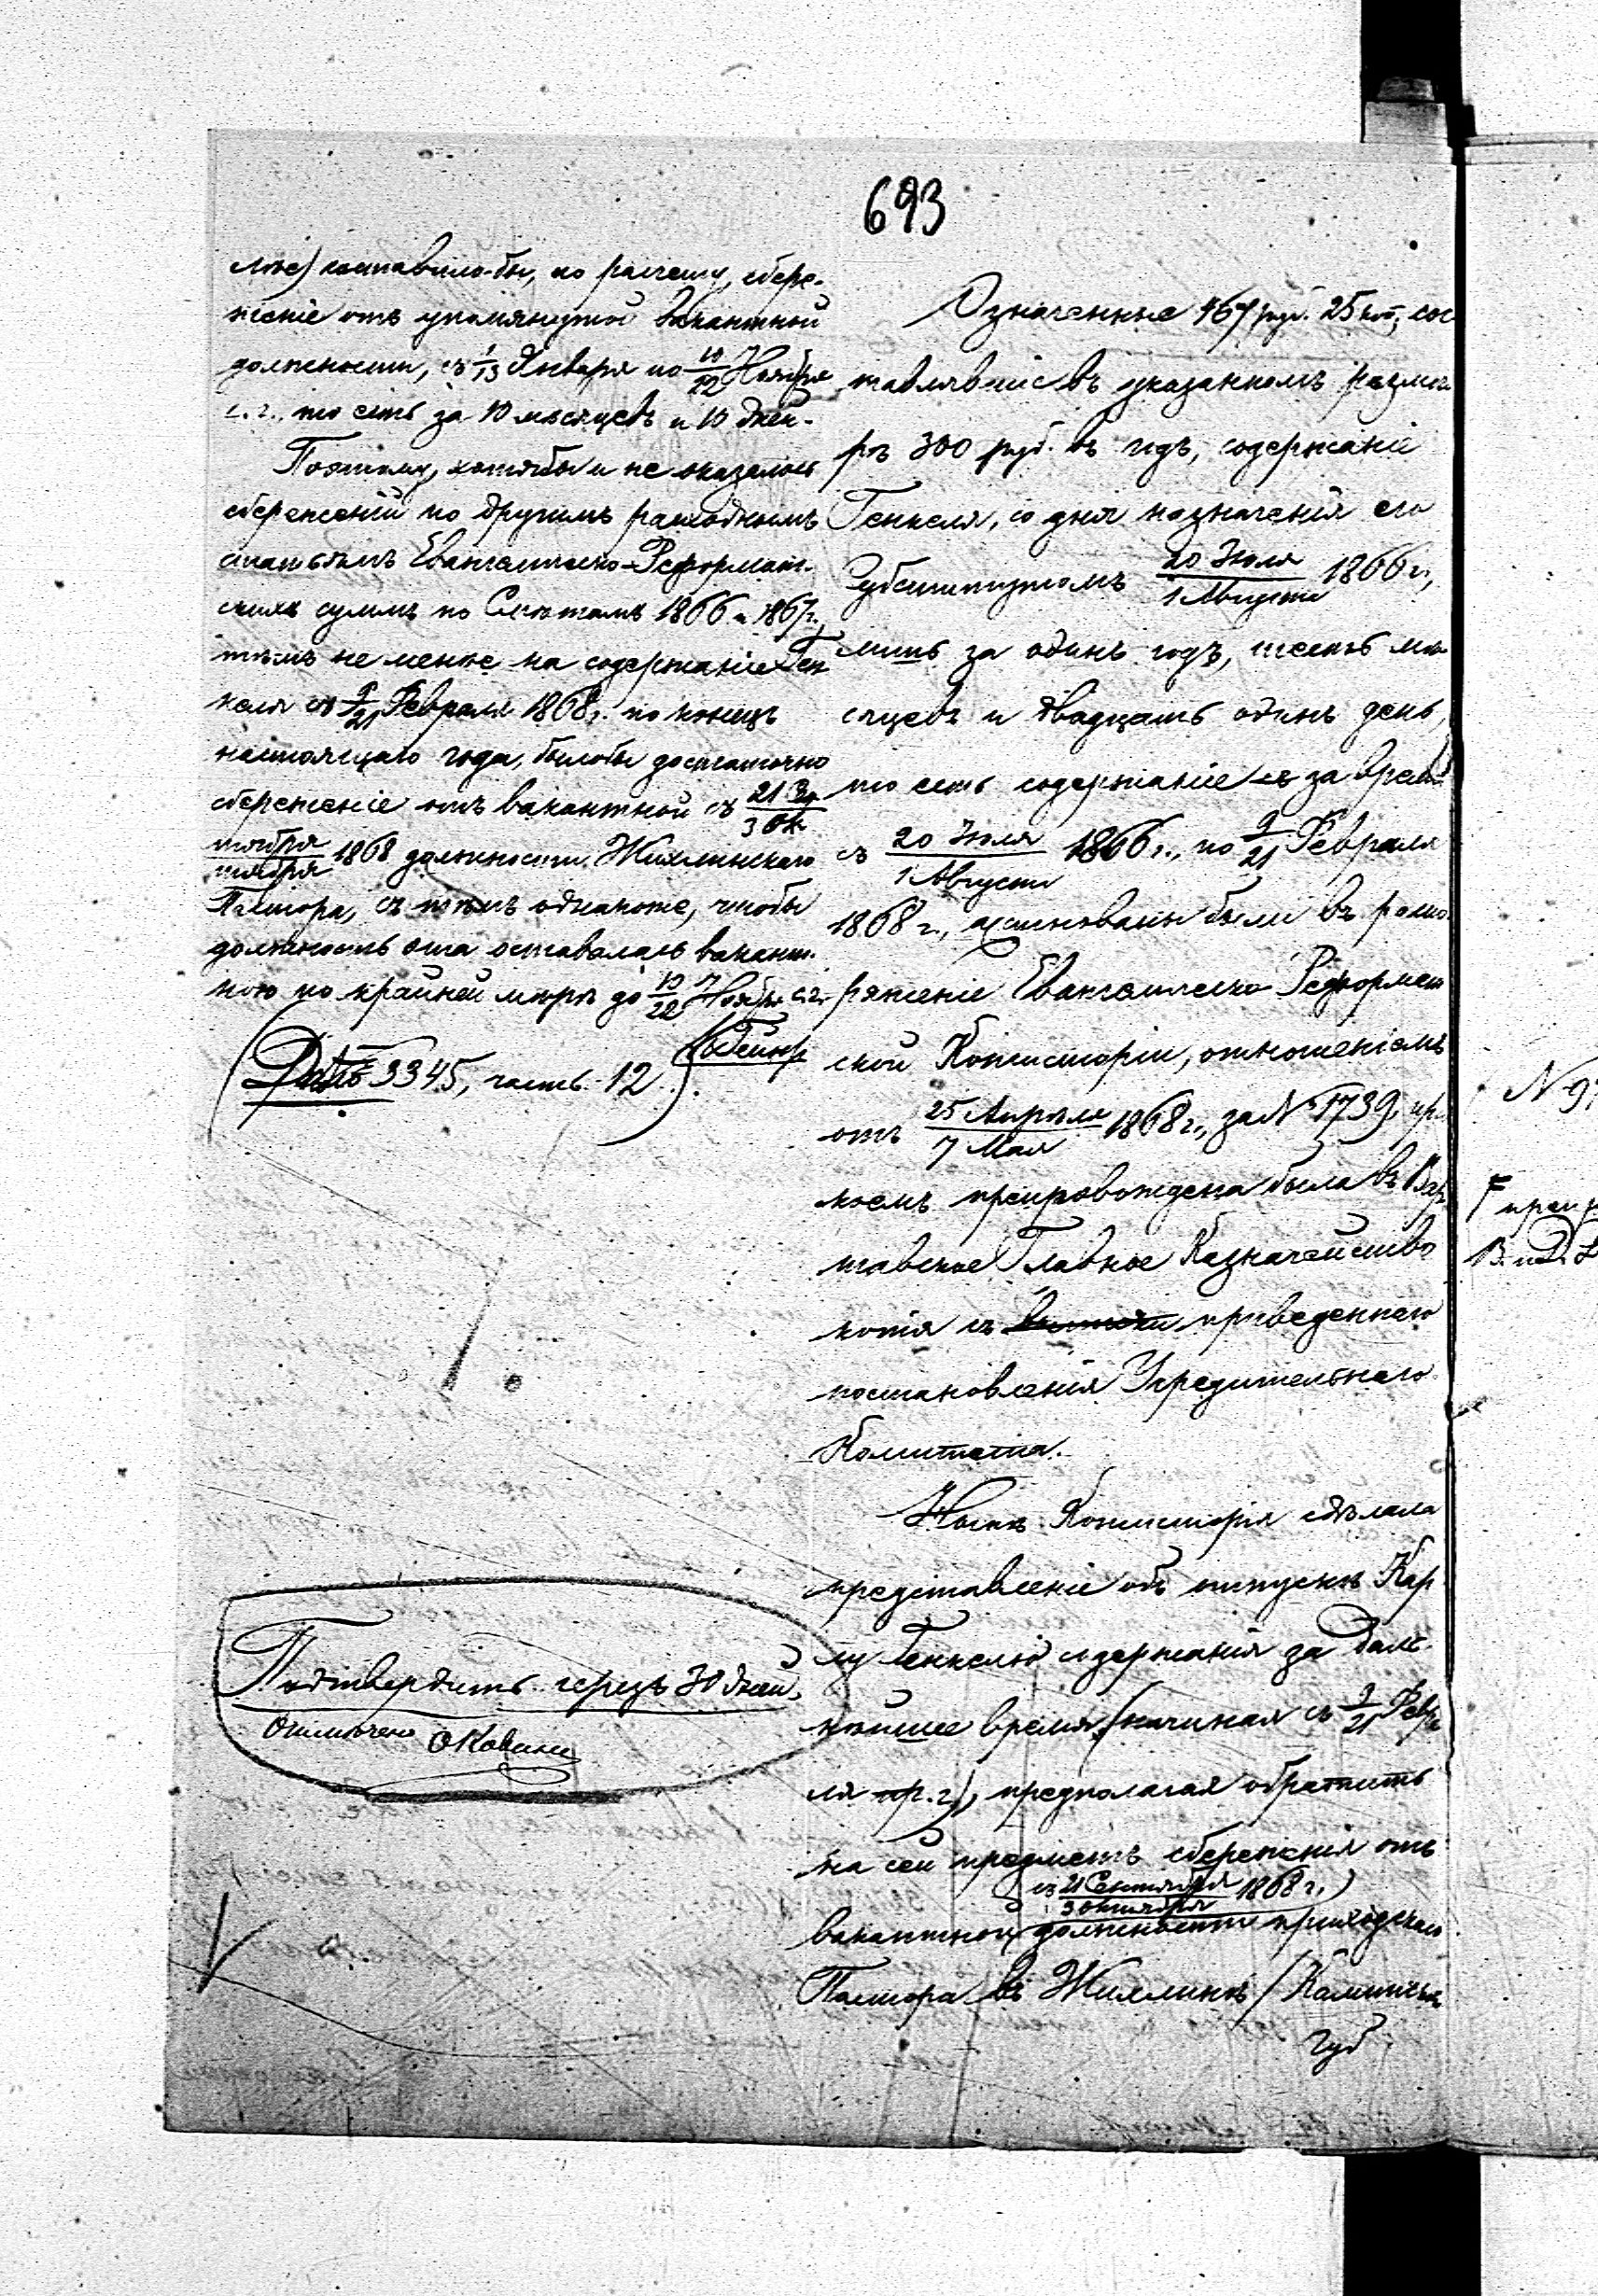 693
лже) составило-бы, по расчету, сбере-
женіе отъ упомянутой вакантной
должности, съ 1/13 Января по 10/22 Ноября
с. г., то есть за 10 мѣсяцевъ и 10 дней.
Поэтому, хотя бы и не оказалось
сбереженій по другимъ расходнымъ
статьямъ Евангелическо-Реформат-
скихъ суммъ по Смѣтамъ 1866 и 1867 г.,
тѣмъ не менѣе на содержаніе Ген
келя съ 9/21 Февраля 1868 г. по конецъ
настоящаго года, было бы достаточно
сбереженіе отъ вакантной съ 21 Сен/3 Ок
тября/тября 1868 должности Жихлинскаго
Пастора, съ тѣмъ однакоже, чтобы
должность эта оставалась вакант-
ною по крайней мѣрѣ до 10/22 Ноября с. г.
3345, часть 12).
Подтвердить черезъ 30 дней.
Отмѣчено
Означенные 467 руб. 25 коп., сос
тавлявшіе въ указанномъ размѣ
рѣ 300 руб. въ годъ, содержаніе
Генкеля, со дня назначенія его
Субститутомъ 20 Іюля/1 Августа 1866 г.,
лишь за одинъ годъ, шесть мѣ
сяцевъ и двадцать одинъ день,
то есть содержаніе за время
съ 20 Іюля/1 Августа 1866 г., по 9/21 Февраля
1868 г., ассигнованы были въ распо
ряженіе Евангелическо-Реформат
ской Консисторіи, отношеніемъ
отъ 25 Апрѣля/7 Мая 1868 г., за № 1739, при
коемъ препровождена была въ Вар
шавское Главное Казначейство
копія съ приведеннаго
постановленія Учредительнаго
Комитета.
Нынѣ Консисторія сдѣлала
представленіе объ отпускѣ Кар
лу Генкелю содержанія за даль-
нѣйшее время, (начиная съ 9/21 Февра
ля пр. г.), предполагая обратить
на сей предметъ сбереженія отъ
съ 21 Сентября/3 Октября 1868 г.)
вакантной должности приходскаго
Пастора въ Жихлинѣ (Калишск.
Губ